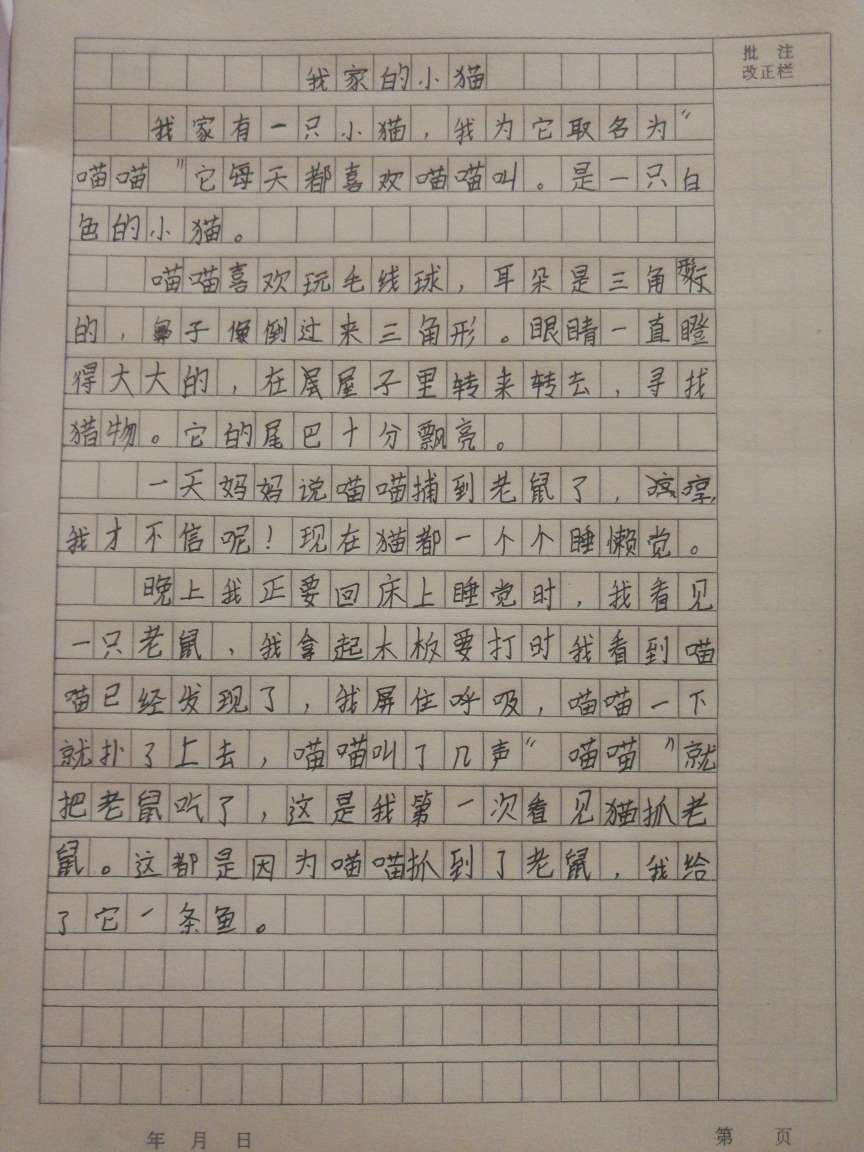 批 注
改正栏
我家的小猫
我家有一只小猫，我为它取名为“
喵喵”它每天都喜欢喵喵叫。是一只白
色的小猫。
喵喵喜欢玩毛线球，耳朵是三角形
的，鼻子像倒过来三角形。眼睛一直瞪
得大大的，在屋子里转来转去，寻找
猎物。它的尾巴十分飘亮。
一天妈妈说喵喵捕到老鼠了，
我才不信呢！现在猫都一个个睡懒觉。
晚上我正要回床上睡觉时，我看见
一只老鼠，我拿起木板要打时我看到喵
喵已经发现了，我屏住呼吸，喵喵一下
就扑了上去，喵喵叫了几声“喵喵”就
把老鼠吃了，这是我第一次看见猫抓老
鼠。这都是因为喵喵抓到了老鼠，我给
了它一条鱼。
年 月 日
第 页